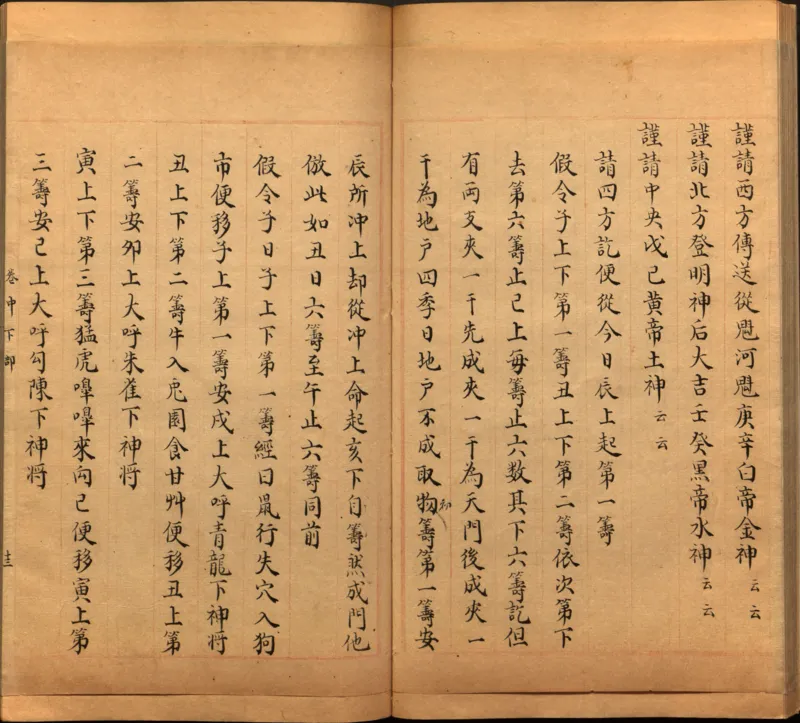 謹請西方傳送從魁河魁庚辛白帝金神云云
謹請北方登明神后大吉壬癸黑帝水神云云
謹請中央戊己黃帝土神云云
請四方訖便從今日辰上起第一籌
假令子上下第一籌丑上下第二籌依次第下
去第六籌止已上每籌止六數其下六籌訖但
有兩支夾一干先成夾一干為天門後成夾一
干為地户四季日地户不成取物初籌第一籌安
辰所冲上却從冲上命起亥下自籌然成門他
倣此如丑日六籌至午止六籌同前
假令子日子上下第一籌經曰鼠行失穴入狗
市便移子上第一籌安戌上大呼青龍下神將
丑上下第二籌牛入兎園食甘艸便移丑上第
二籌安夘上大呼朱雀下神將
寅上下第三籌猛虎嘷嘷來向已便移寅上第
三籌安已上大呼勾陳下神将
卷中下